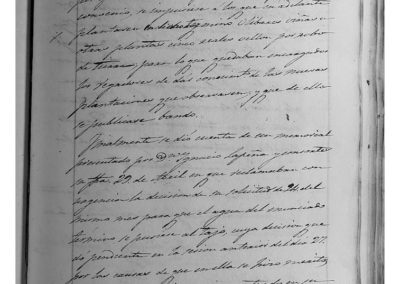 convenio, se impusiese a los que en adelante
plantasen en dicho termino Olibares viñas u
otras plantas cinco reales vellon por robo
de tierra; para lo que quedaban encargados
los regadores de dar cuenta de las nuevas
plantaciones que observasen, y que de ello
se publicase bando.
Finalmente se dió cuenta de un memorial
presentado por Dn Ignacio Lapeña y consortes
en fha. 29 de Abril en que reclamaban con
urgencia la decision de su solicitud de 24 del
mismo mes para que el agua del enunciado
termino se pusiese al tajo, cuya decision que
dó pendiente en la sesion anterior del dia 27.
por las causas de que en ella se hizo merito